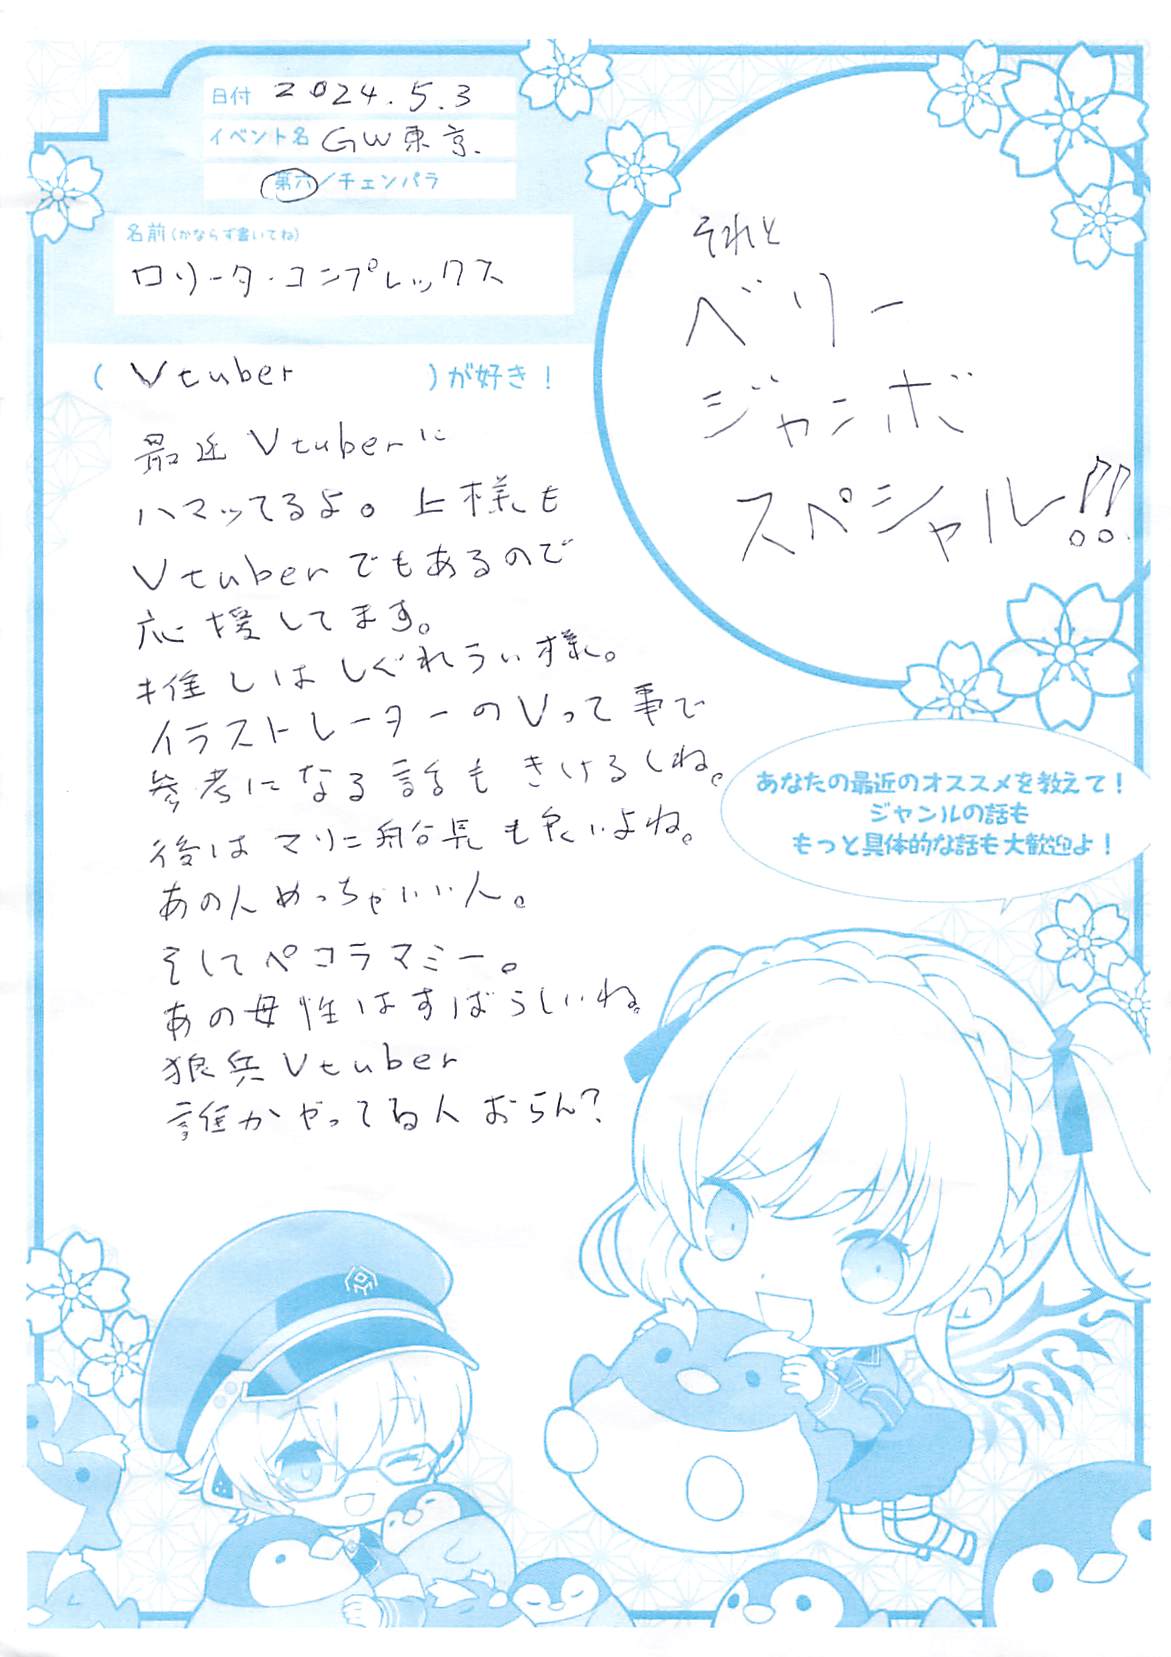 日付 2024.5.3
イベント名 GW東京.
第六/チェンパラ
名前(かならず書いてね)
ロリータ・コンプレックス
( Vtuber )が好き!
最近Vtuberに
ハマッてるよ。上様も
Vtuberでもあるので
応援してます。
推しはしぐれうい様。
イラストレーターのVって事で
参考になる話もきけるしね。
後はマリン船長も良いよね。
あの人めっちゃいい人。
そしてペコラマミー。
あの母性はすばらしいね。
狼兵Vtuber
誰かやってる人おらん?
それと
ベリー
ジャンボ
スペシャル!!
あなたの最近のオススメを教えて!
ジャンルの話も
もっと具体的な話も大歓迎よ!